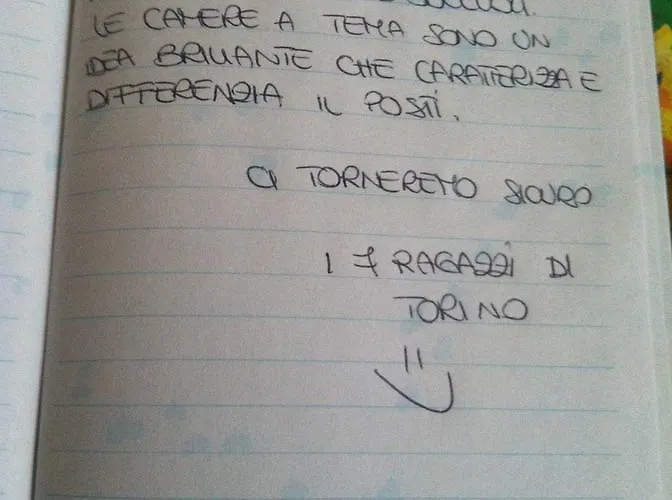 LE CAMERE A TEMA SONO UN
IDEA BRILLANTE CHE CARATTERIZZA E
DIFFERENZIA IL POSTI.
CI TORNEREMO SICURO
I 7 RAGAZZI DI
TORINO